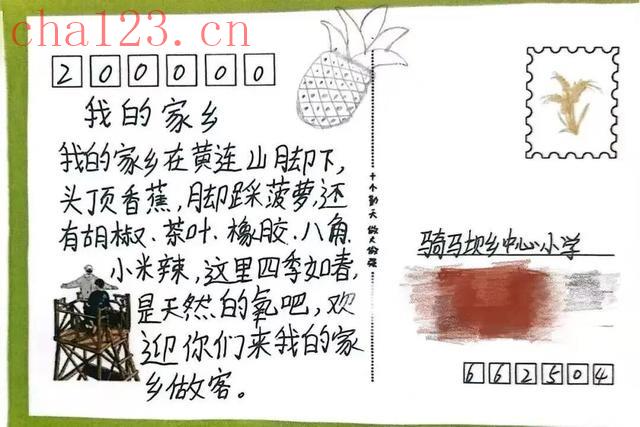 cha123.cn
200000
我的家乡
我的家乡在黄连山脚下,
头顶香蕉,脚踩菠萝,还
有胡椒、茶叶、橡胶、八角、
小米辣,这里四季如春,
是天然的氧吧,欢
迎你们来我的家
乡做客。
骑马坝乡中心小学
662504